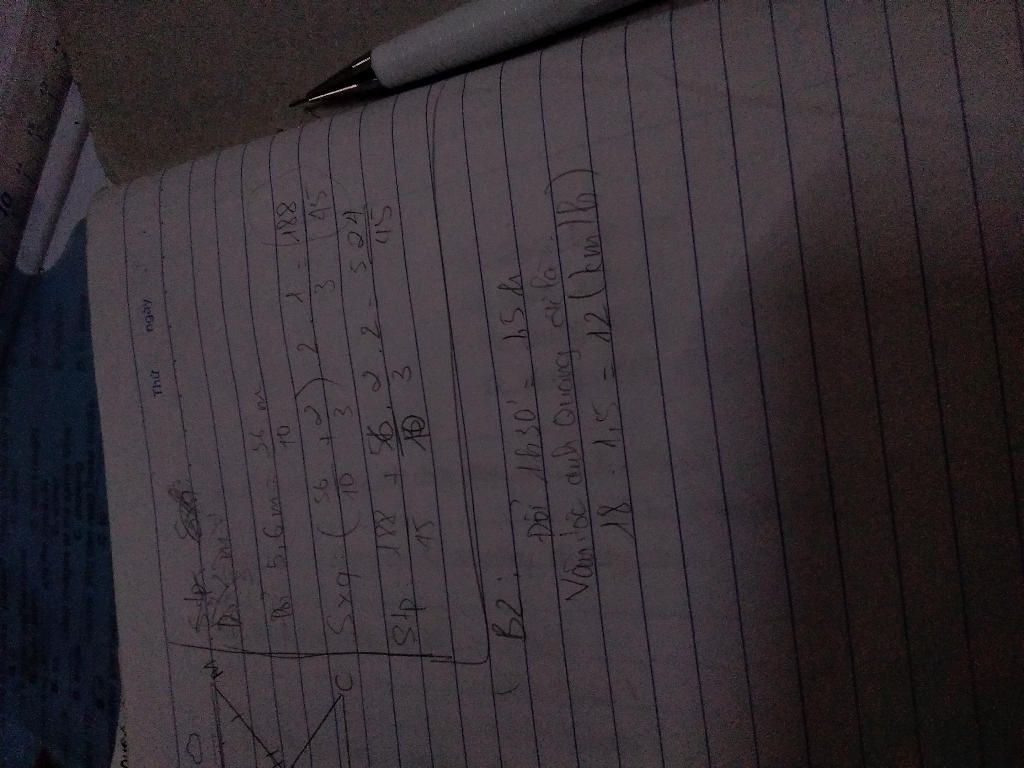 Thứ ngày
Stp
Đổi 5,6 m = 56/10 m
Sxq: (56/10 + 2/3) 2 . 1/3 = 188/45
Stp 188/45 + 56/10 . 2/3 . 2 = 524/45
B2:
Đổi 1h30' = 1,5 h
Vận tốc anh Quang đi là
18 : 1,5 = 12 (km/h)
A
C